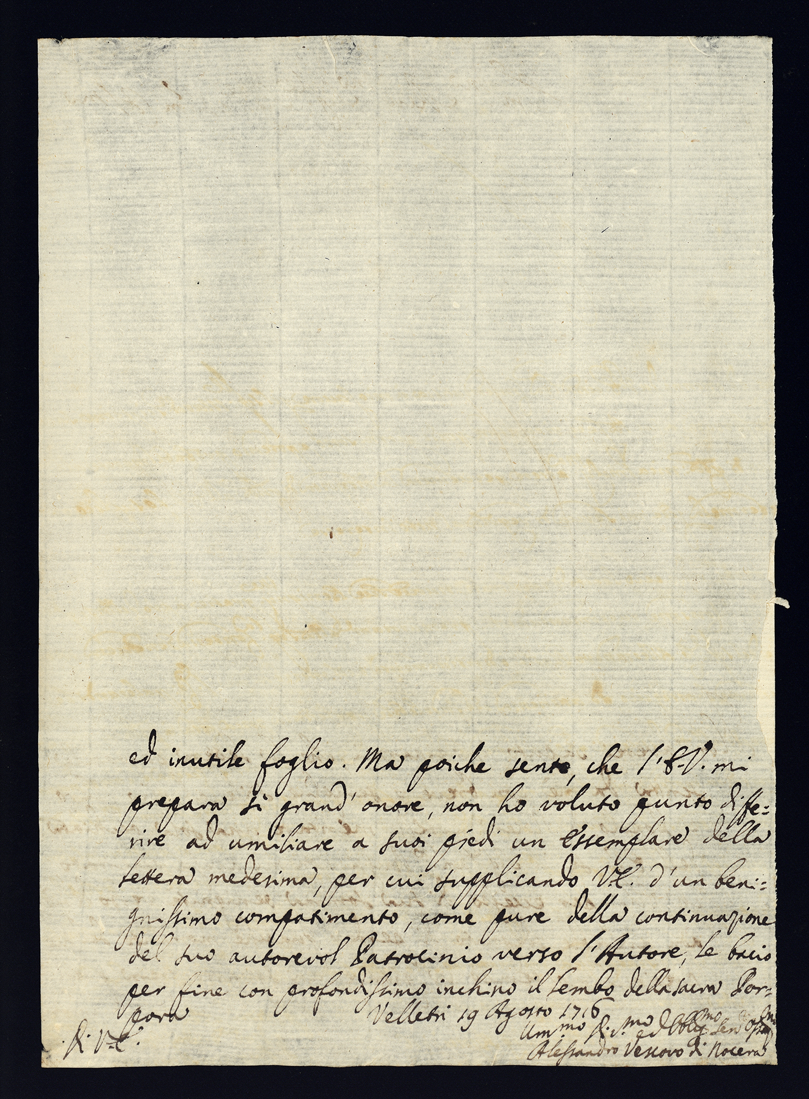 ed inutile foglio. Ma poiche sento, che l'E.V. mi
prepara sì grand'onore, non ho voluto punto diffe=
rire ad umiliare a suoi piedi un essemplare della
lettera medesima, per cui supplicando V.E. d'un beni=
gnissimo compatimento, come pure della continuazione
del suo autorevol Patrocinio verso l'Autore, le bacio
per fine con profondissimo inchino il lembo della sacra Por=
pora
Velletri 19 Agosto 1716
Di V.E.
Um.mo D.v.mo ed Obblig.mo
Alessandro Vescovo di Nocera